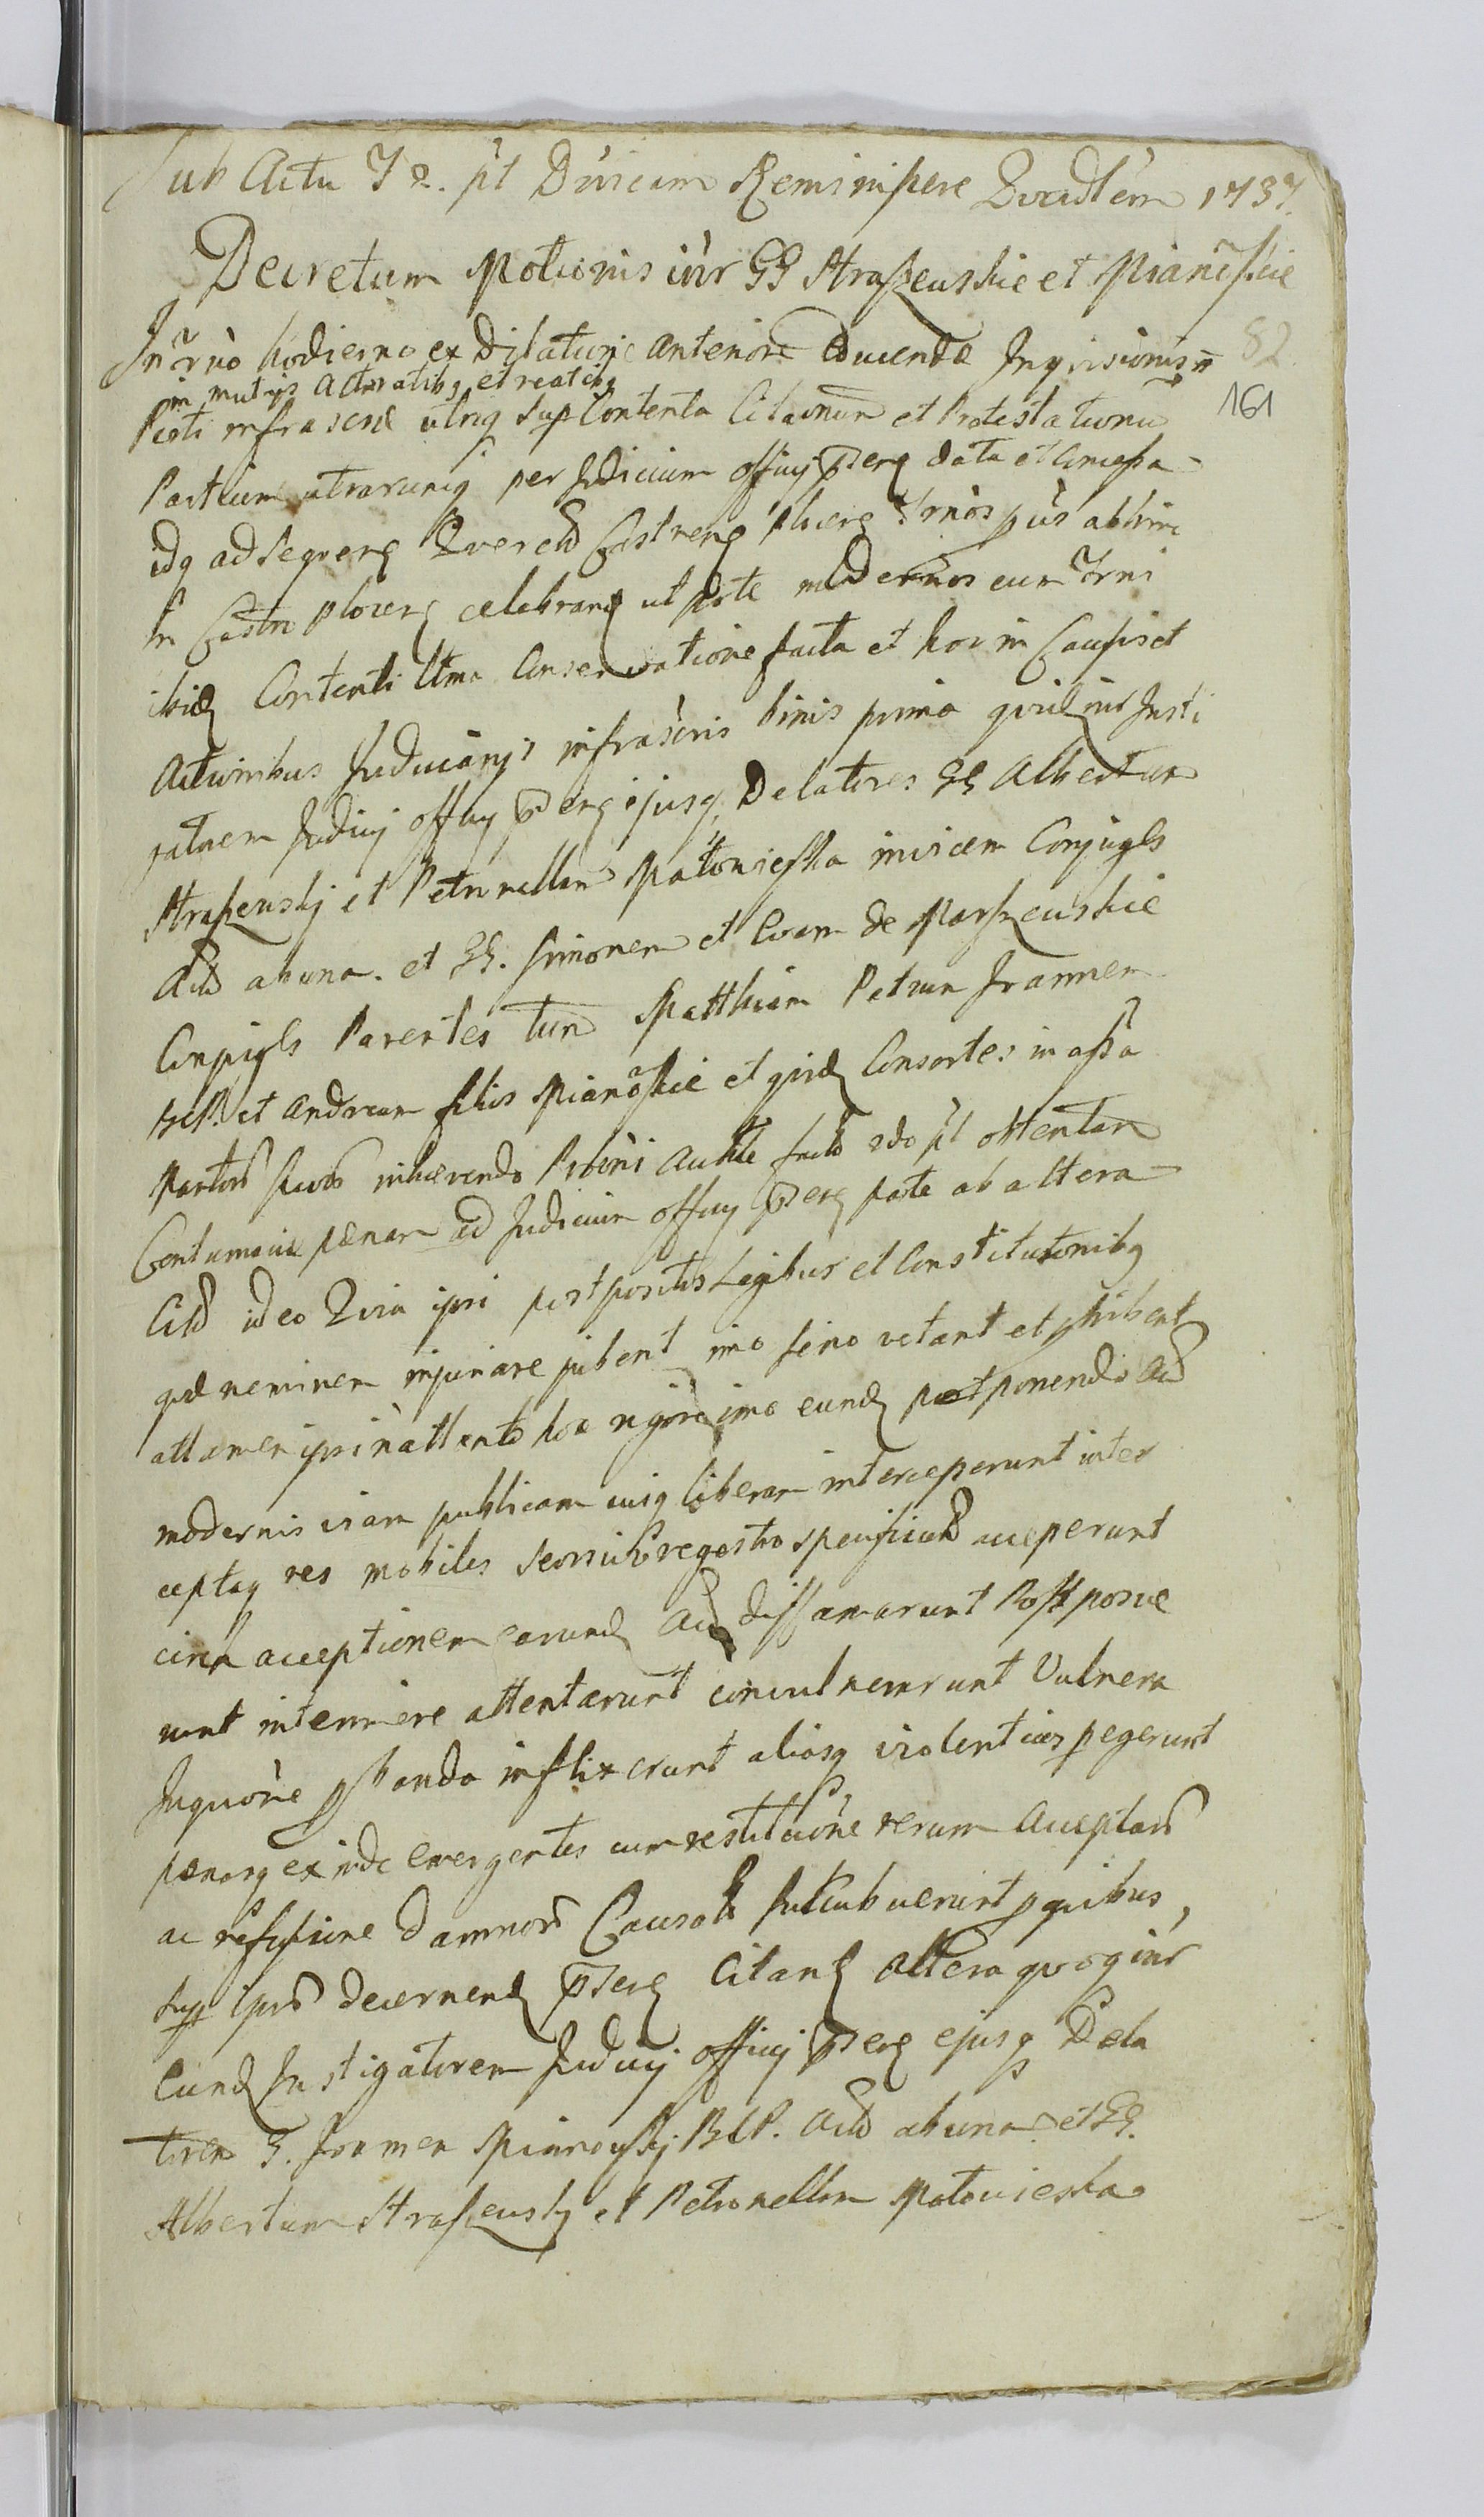 Sub Actu Fe. pt Dnicam Reminiscere Quadlem 1737.
Decretum Motionis intr GG Straszewskie et Mianoskie
In Trno hodierno ex Dilatione anteriore educendae Inqvisionis
in mutuis Actoratibq et reatibq
82
161
Parti infrascrae utriq sup Contenta Citaonum et Protestationu
Partium utrarumq per Judicium officy Pserq data et concessa
idq ad seqvenq Querelas Castrenq Plocenq Trnos pns abhinc
in Castro Plocenq celebranq utpote modernos cum Trni
ibidq Contenti ltma Conservatione facta et hoc in Causis et
Actionibus Judicianis infrascris binis prima qvidq intr Insti
gatorem Judicij officy Pserq ejusq Delatores GG Albertum
Straszewsky et Petronellam Matowieska invicem Conjugls
Actd ab una et GG. Simonem et Evam de Marszewskie
Conjugls Parentes tum Matthiam Petrum Joannem
BcP. et Andream filios Mianoskie et qvidq Consortes in assa
Maritor suor inhaerendo Priori Actitte facto 2do pt obtentam
Contumaciae paenam ad Judicium officy Pserq parte ab altera
Citd ideo Qvia ipsi postpositis Legibus et Constitutionibq
qvae neminem injuriare jubent imo serio vetant et phibent
attamen ipsi inattento hoc rigore imo eundq postponendo Actd
modernis viam publicam cuiq liberam interceperunt inter
ceptaq res mobiles seorsivo regestro specificatd acceperunt
circa acceptionem earundq Actd diffamarunt Postposue
runt interimere attentarunt convulnerarunt Vulnera
Inqvone pbanda inflixerunt aliasq violentias pegerunt
paenasq exinde emergentes cum restitutione rerum Acceptard
ac refusione damnord Causatd succubuerunt pqvibus
sup ipsd decernendq Pserq Citandq Altera qvoq intr
Eundq Instigatorem Judicij officij Pserq ejusq Dela
torem G. Joannem Mianowsky BcP. Actd ab una et GG.
Albertum Straszewsky et Petronellam Matowieska